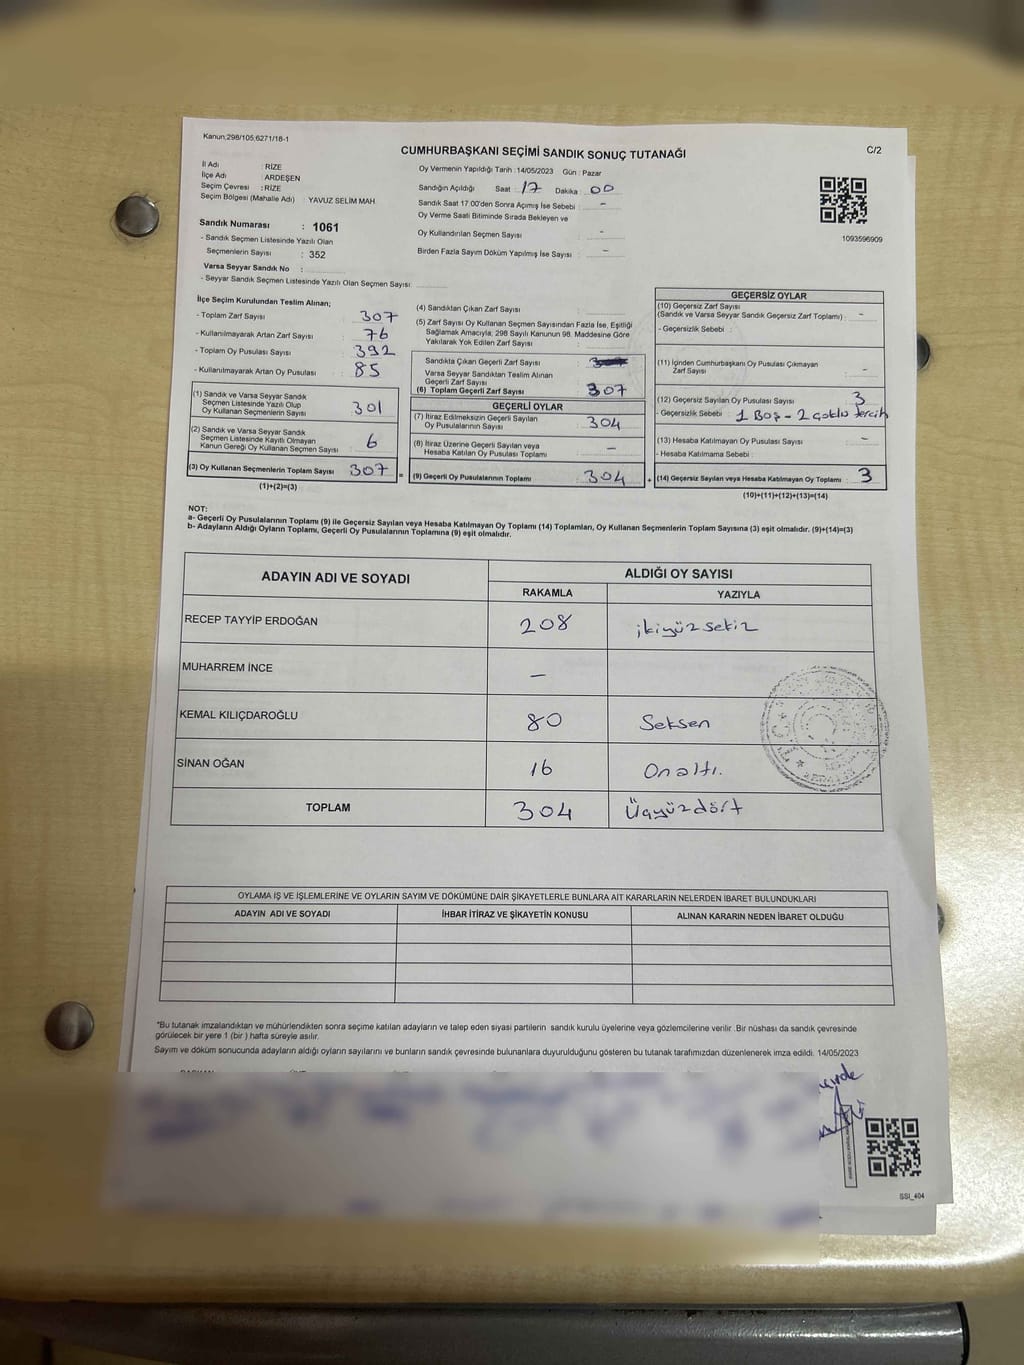 Kanun;298/105;6271/18-1
CUMHURBAŞKANI SEÇİMİ SANDIK SONUÇ TUTANAĞI
C/2
İl Adı : RİZE
İlçe Adı : ARDEŞEN
Seçim Çevresi : RİZE
Seçim Bölgesi (Mahalle Adı) : YAVUZ SELİM MAH.
Sandık Numarası : 1061
- Sandık Seçmen Listesinde Yazılı Olan
Seçmenlerin Sayısı : 352
Varsa Seyyar Sandık No :
- Seyyar Sandık Seçmen Listesinde Yazılı Olan Seçmen Sayısı:
Oy Vermenin Yapıldığı Tarih :14/05/2023 Gün : Pazar
Sandığın Açıldığı Saat : 17 Dakika : 00
Sandık Saat 17.00'den Sonra Açılmış İse Sebebi : -
Oy Verme Saati Bitiminde Sırada Bekleyen ve
Oy Kullandırılan Seçmen Sayısı : -
Birden Fazla Sayım Döküm Yapılmış İse Sayısı : -
1093596909
İlçe Seçim Kurulundan Teslim Alınan;
- Toplam Zarf Sayısı : 307
- Kullanılmayarak Artan Zarf Sayısı : 76
- Toplam Oy Pusulası Sayısı : 392
- Kullanılmayarak Artan Oy Pusulası : 85
(1) Sandık ve Varsa Seyyar Sandık
Seçmen Listesinde Yazılı Olup
Oy Kullanan Seçmenlerin Sayısı : 301
(2) Sandık ve Varsa Seyyar Sandık
Seçmen Listesinde Kayıtlı Olmayan
Kanun Gereği Oy Kullanan Seçmen Sayısı : 6
(3) Oy Kullanan Seçmenlerin Toplam Sayısı : 307 =
(1)+(2)=(3)
(4) Sandıktan Çıkan Zarf Sayısı :
(5) Zarf Sayısı Oy Kullanan Seçmen Sayısından Fazla İse, Eşitliği
Sağlamak Amacıyla, 298 Sayılı Kanunun 98. Maddesine Göre
Yakılarak Yok Edilen Zarf Sayısı :
Sandıkta Çıkan Geçerli Zarf Sayısı :
Varsa Seyyar Sandıktan Teslim Alınan
Geçerli Zarf Sayısı :
(6) Toplam Geçerli Zarf Sayısı : 307
GEÇERLİ OYLAR
(7) İtiraz Edilmeksizin Geçerli Sayılan
Oy Pusulasının Sayısı : 304
(8) İtiraz Üzerine Geçerli Sayılan veya
Hesaba Katılan Oy Pusulası Toplamı : -
(9) Geçerli Oy Pusulalarının Toplamı : 304 +
GEÇERSİZ OYLAR
(10) Geçersiz Zarf Sayısı
(Sandık ve Varsa Seyyar Sandık Geçersiz Zarf Toplamı) : -
- Geçersizlik Sebebi :
(11) İçinden Cumhurbaşkanı Oy Pusulası Çıkmayan
Zarf Sayısı : -
(12) Geçersiz Sayılan Oy Pusulası Sayısı : 3
- Geçersizlik Sebebi : 1 Boş - 2 çoklu tercih
(13) Hesaba Katılmayan Oy Pusulası Sayısı : -
- Hesaba Katılmama Sebebi :
(14) Geçersiz Sayılan veya Hesaba Katılmayan Oy Toplamı : 3
(10)+(11)+(12)+(13)=(14)
NOT:
a- Geçerli Oy Pusulalarının Toplamı (9) ile Geçersiz Sayılan veya Hesaba Katılmayan Oy Toplamı (14) Toplamları, Oy Kullanan Seçmenlerin Toplam Sayısına (3) eşit olmalıdır. (9)+(14)=(3)
b- Adayların Aldığı Oyların Toplamı, Geçerli Oy Pusulalarının Toplamına (9) eşit olmalıdır.
ADAYIN ADI VE SOYADI ALDIĞI OY SAYISI
RAKAMLA YAZIYLA
RECEP TAYYİP ERDOĞAN 208 ikiyüzsekiz
MUHARREM İNCE -
KEMAL KILIÇDAROĞLU 80 Seksen
SİNAN OĞAN 16 Onaltı.
TOPLAM 304 Üçyüzdört
OYLAMA İŞ VE İŞLEMLERİNE VE OYLARIN SAYIM VE DÖKÜMÜNE DAİR ŞİKAYETLERLE BUNLARA AİT KARARLARIN NELERDEN İBARET BULUNDUKLARI
ADAYIN ADI VE SOYADI İHBAR İTİRAZ VE ŞİKAYETİN KONUSU ALINAN KARARIN NEDEN İBARET OLDUĞU
*Bu tutanak imzalandıktan ve mühürlendikten sonra seçime katılan adayların ve talep eden siyasi partilerin sandık kurulu üyelerine veya gözlemcilerine verilir .Bir nüshası da sandık çevresinde
görülecek bir yere 1 (bir ) hafta süreyle asılır.
Sayım ve döküm sonucunda adayların aldığı oyların sayılarını ve bunların sandık çevresinde bulunanlara duyurulduğunu gösteren bu tutanak tarafımızdan düzenlenerek imza edildi. 14/05/2023
SSI_404